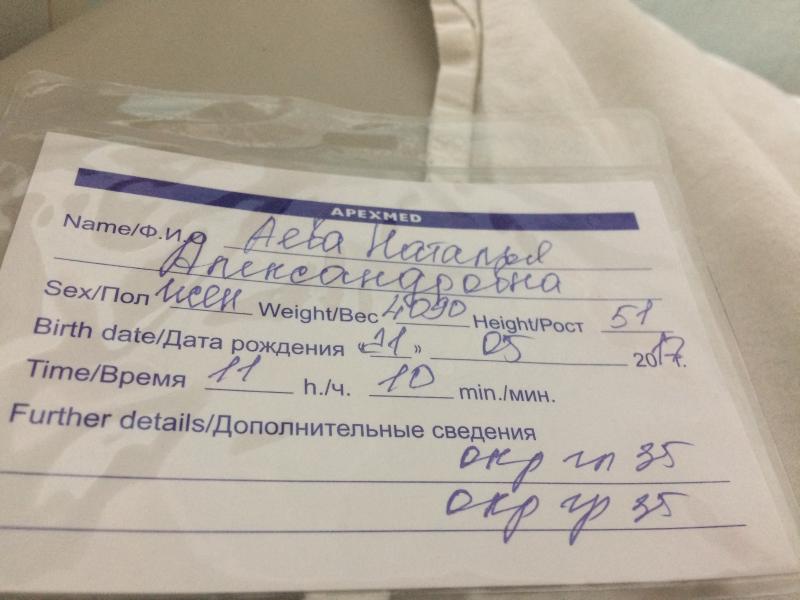 APEXMED
Name/Ф.И.О Аева Наталья
Александровна
Sex/Пол жен Weight/Вес 4090 Height/Рост 51
Birth date/Дата рождения «11» 05 2017г.
Time/Время 11 h./ч. 10 min./мин.
Further details/Дополнительные сведения
окр гл 35
окр гр 35